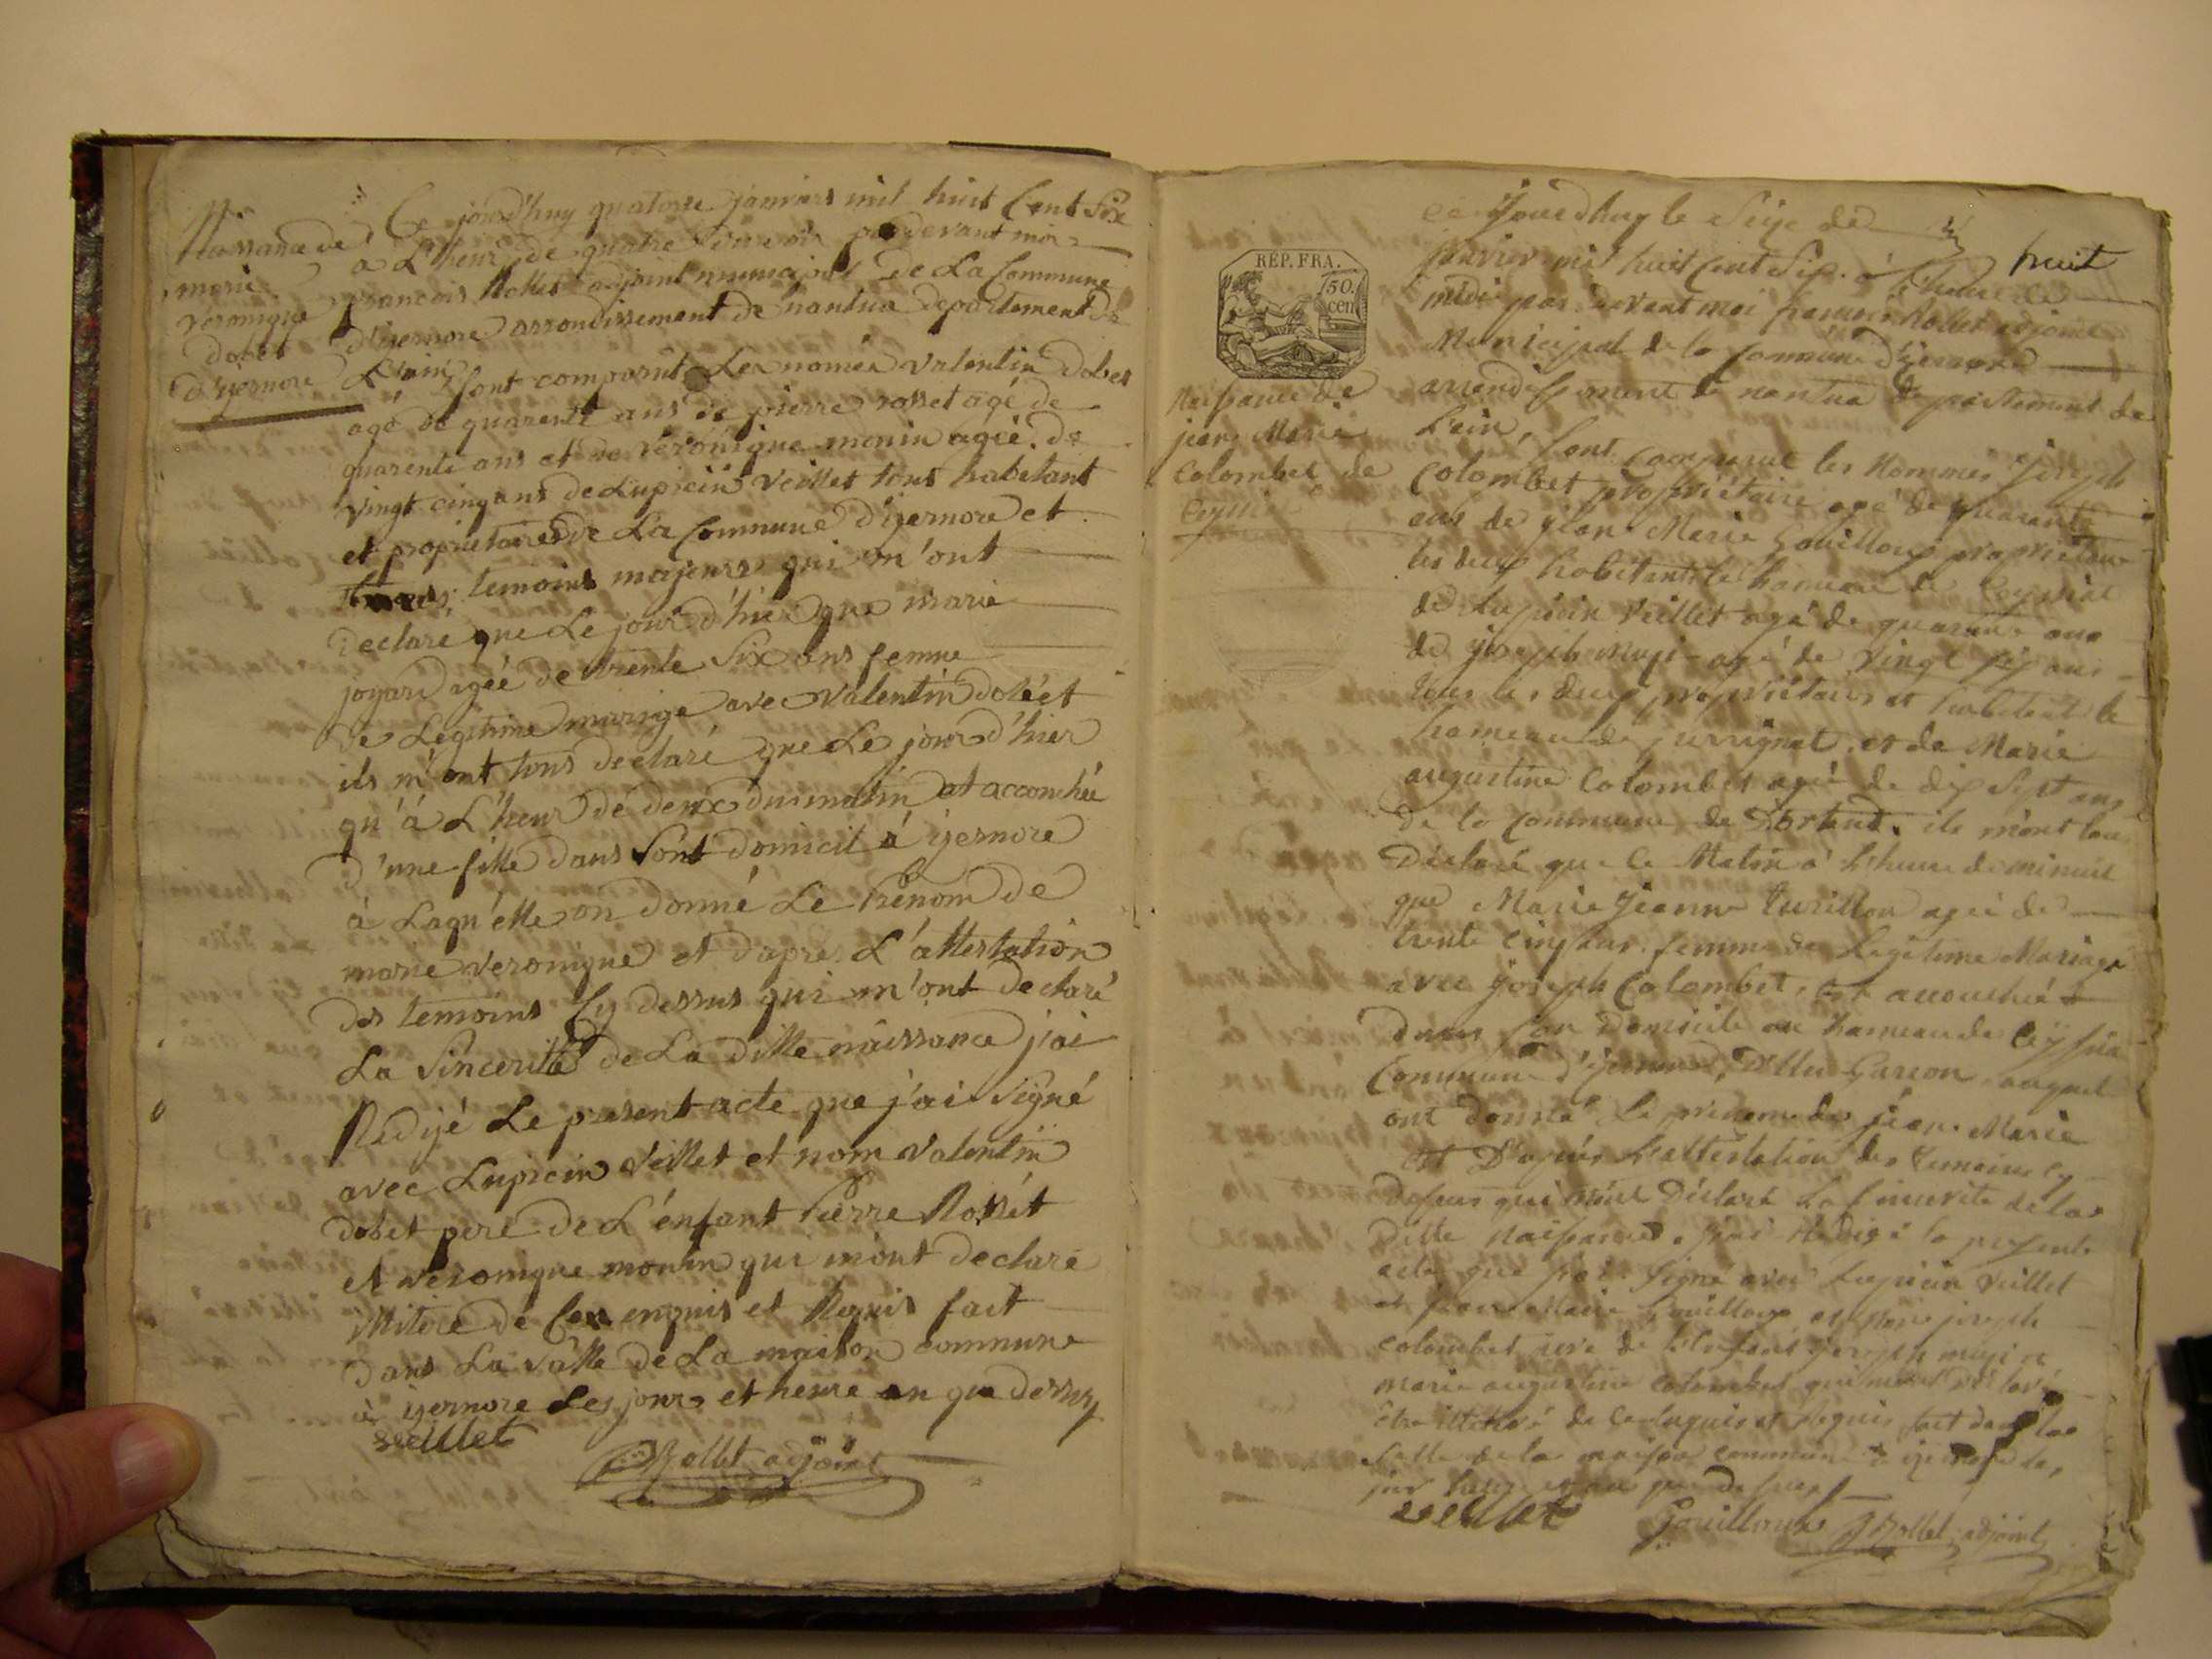 Naissance de
marie
veronique
dobet
d'izernore
Ce jourd'huy quatorze janvier mil huit Cent Six
à L'heure de quatre pardevant moi
françois Rollet adjoint municipal de La Commune
d'izernore arrondissement de nantua departement de
L'ain, Sont comparût Les només valentin dobet
agé de quarente ans de pierre rosset agé de
quarente ans et de veronique monin agée de
vingt cinq ans de Lupicin veillet tous habitant
et propriétaires de La Commune d'izernore et
temoins majeurs qui m'ont
declaré que Le jour d'hier que marie
joyard agée de trente Six ans femme
de Legitime mariage avec valentin dobet
ils m'ont tous declaré que Le jour d'hier
qu'à L'heur de deux du matin at accouchée
d'une fille dans Sont domicil à izernore
à Laqu'elle on donné Le Prénom de
marie veronique et d'après L'attestation
des temoins Cy dessus qui m'ont declaré
La Sincerité de La ditte naissance j'ai
Redijé Le present acte que j'ai Signé
avec Lupicin veillet et nom valentin
dobet pere de L'énfant Pierre Rossét
et veronique monin qui m'ont declaré
illitéré de Ces enquis et Requis fait
dans La salle de La maison commune
à izernore Les jours et heure an que dessus
veillet
Rollet adjoint
huit
RÉP. FRA.
50
cen
Naissance de
jean Marie
Colombet de
Ceyssia
ce Jourdhuy le Seize de
janvier mil huit Cent Six à l'heure de
midi par devant moi françois Rollet adjoint
Municipal de la Commune d'izernore
arrondissement de nantua departement de
Lain, Sont Comparut les Nommés Joseph
Colombet propriétaire agé de quarente
ans de jean Marie Gouilloux propriétaire
les deux habitants le hameau de Ceyssia
de Lupicin Veillet agé de quarante ans
de joseph agé de Vingt six ans
tous les deux propriétaires et habitant le
hameau de perrignat et de Marie
augustine Colombet agé de dix Sept ans
De la Commune de Dortend. ils m'ont tous
Déclaré que le Matin à L'heure de minuit
que Marie Jeanne Turillon agée de
trente Cinq ans femme de Légitime Mariage
avec Joseph Colombet, est accouchée
dans Son Domicile au hameau de Ceyssia
Commune d'izernore, D'un Garcon auquel
ont donné le prénom de jean Marie
et D'après L'attestation des temoins Cy
dessus qui m'ont Déclaré la Sincérité de la
ditte Naissance, j'ai Rédigé le present
acte que j'ai Signé avec Lupicin Veillet
et jean Marie Gouilloux, et Non joseph
Colombet père de L'enfant joseph et
marie augustine Colombet qui m'ont déclaré
être illitéré de Ce Enquis et Requis fait dans la
Salle de la maison Commune à izernore les
jour heure et an que dessus
veillet
Gouilloux
Rollet adjoint